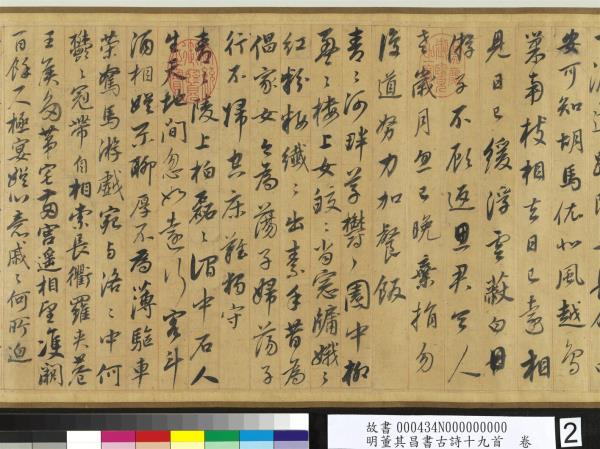 安可知胡馬依北風越鳥
巢南枝相去日已遠相
見日已緩浮雲蔽白日
游子不顧返思君令人
老歲月忽已晚棄捐勿
復道努力加餐飯
青〻河畔草欝〻園中柳
盈〻樓上女皎〻當窓牖娥〻
紅粉粧纖〻出素手昔為
倡家女今為蕩子婦蕩子
行不歸空床難獨守
青〻陵上柏磊〻澗中石人
生天地間忽如遠行客斗
酒相娛樂聊厚不為薄驅車
策駑馬游戲宛與洛〻中何
欝〻冠帶自相索長衢羅夾巷
王矦多第宅兩宮遙相望雙闕
百餘尺極宴娛心意戚〻何所迫
故書 000434N000000000
明董其昌書古詩十九首 卷
2